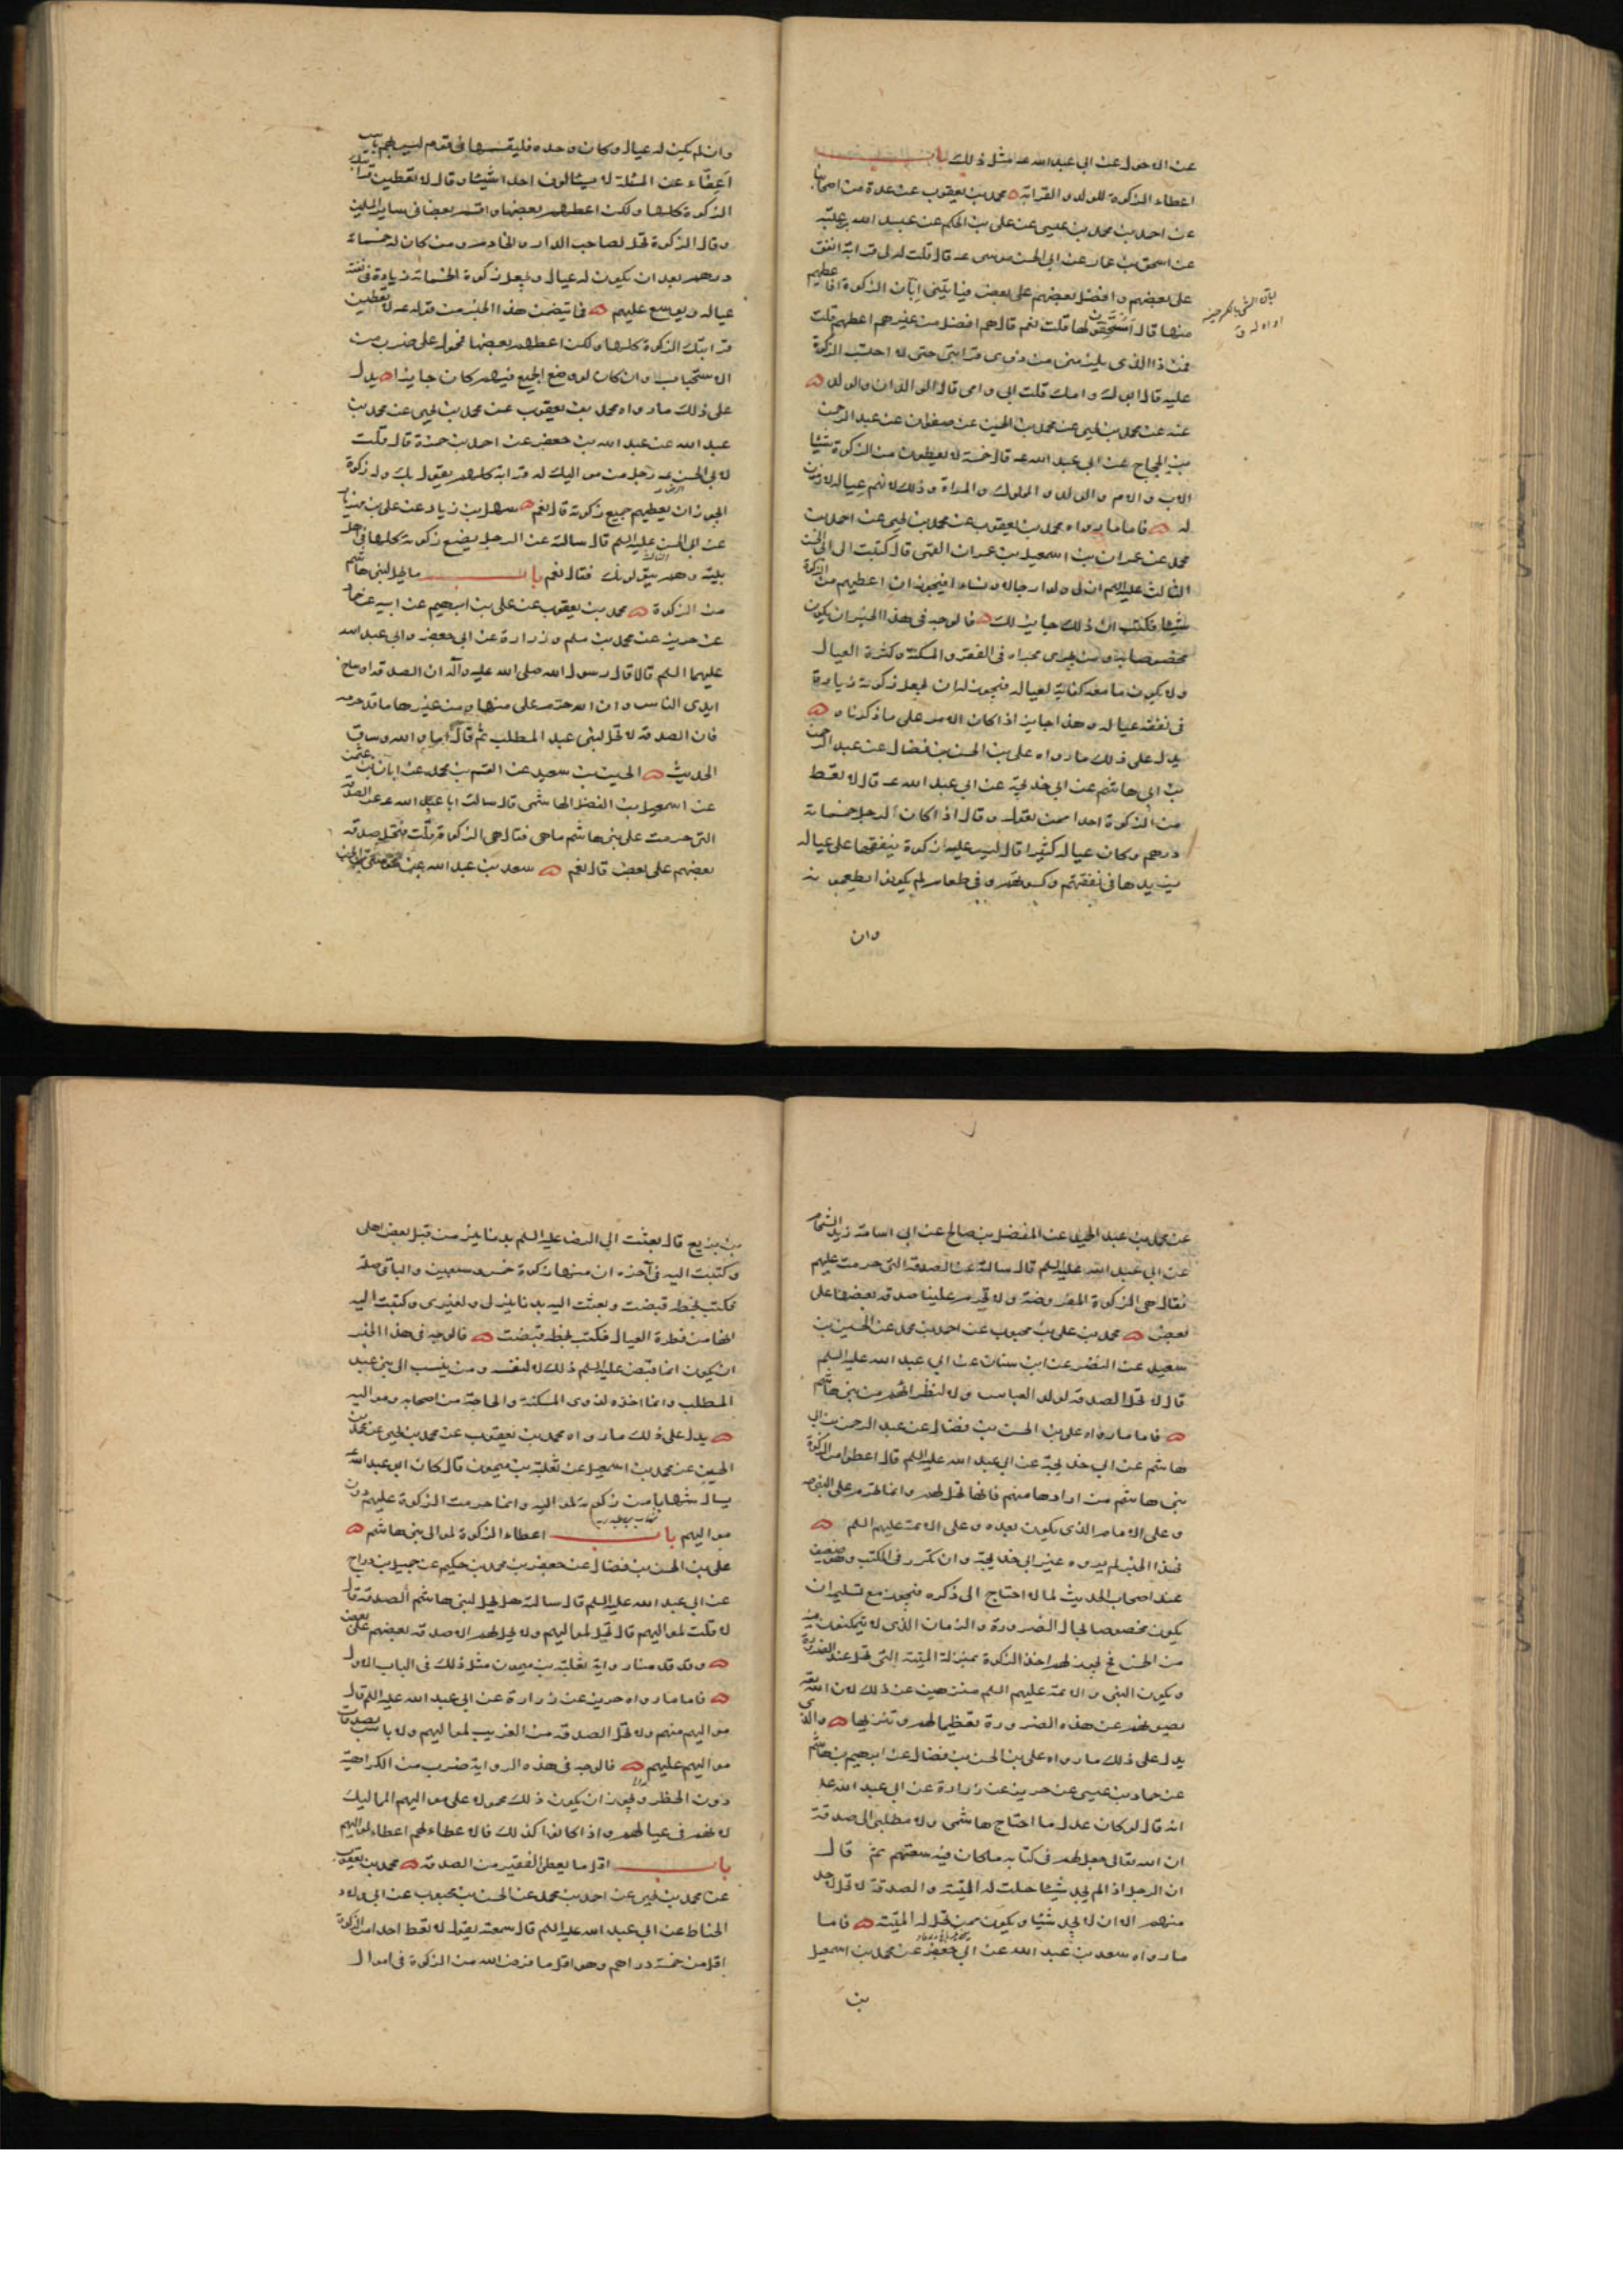 عن الاحول عن ابي عبد الله عه مثل ذلك باب
اعطاء الزكوة للولد والقرابة محمد بن يعقوب عن عدة من اصحابنا
عن احمد بن محمد بن عيسى عن علي بن الحكم عن عبد الله بن عتبة
عن اسحق بن عمار عن ابي الحسن موسى عه قال قلت له لي قرابة انفق
على بعضهم وافضل بعضهم على بعض فياتيني ابان الزكوة افاعطيهم
منها قال أمستحقون لها قلت نعم قال هم افضل من غيرهم اعطهم قلت
فمن ذا الذي يلزمني من ذوي قرابتي حتى لا احتسب الزكوة
عليه قال ابوك وامك قلت ابي وامي قال الوالدان والولد
عنه عن محمد بن يحيى عن محمد بن الحسين عن صفوان عن عبد الرحمن
بن الحجاج عن ابي عبد الله عه قال خمسة لا يعطون من الزكوة شيئا
الاب والام والولد والمملوك والمراة وذلك لانهم عياله لازمون
له فاما ما رواه محمد بن يعقوب عن محمد بن يحيى عن احمد بن
محمد عن عمران بن اسمعيل بن عمران القمي قال كتبت الى ابي الحسن
الثالث عليه السلم ان لي ولدا رجالا ونساء افيجوز ان اعطيهم من الزكوة
شيئا فكتب ان ذلك جايز لك فالوجه في هذا الخبر ان يكون
مخصوصا به ومن يجري مجراه في الفقر والمسكنة وكثرة العيال
ولا يكون ما معه كفاية لعياله فيجوز له ان يجعل زكوته زيادة
في نفقة عياله وهذا جايز اذا كان الامر على ما ذكرناه
يدل على ذلك ما رواه علي بن الحسن بن فضال عن عبد الرحمن
بن ابي هاشم عن ابي خديجة عن ابي عبد الله عه قال لا تعط
من الزكوة احدا ممن تعول وقال اذا كان لرجل خمسمائة
درهم وكان عياله كثيرا قال ليس عليه زكوة ينفقها على عياله
يزيدها في نفقتهم وكسوتهم وفي طعام لم يكونوا يطعمونه
وان
ابان الشئ بالكسر حينه
او اوله ق
وان لم يكن له عيال وكان وحده فليقسمها في قوم ليس بهم باس
اعفاء عن المسئلة لا يسئالون احدا شيئا وقال لا تعطين قرابتك
الزكوة كلها ولكن اعطهم بعضها واقسم بعضا في ساير المسلمين
وقال الزكوة تحل لصاحب الدار والخادم ومن كان له خمسمائة
درهم بعد ان يكون له عيال ويجعل زكوة الخمسمائة زيادة في نفقة
عياله ويوسع عليهم فما يتضمن هذا الخبر من قوله عه لا تعطين
قرابتك الزكوة كلها ولكن اعطهم بعضها فمحمول على ضرب من
الاستحباب وان كان لو وضع الجميع فيهم كان جايزا يدل
على ذلك ما رواه محمد بن يعقوب عن محمد بن يحيى عن محمد بن
عبد الله عن عبد الله بن جعفر عن احمد بن حمزة قال قلت
لابي الحسن عه رجل من مواليك له قرابة كلهم يقول بك وله زكوة
ايجوز ان يعطيهم جميع زكوته قال نعم سهل بن زياد عن علي بن مهزيار
عن ابي الحسن عليه السلم قال سالته عن الرجل يضع زكوته كلها في اهل
بيته وهم يتولونك فقال نعم باب ما يحل لبني هاشم
من الزكوة محمد بن يعقوب عن علي بن ابرهيم عن ابيه عن حماد
عن حريز عن محمد بن مسلم وزرارة عن ابي جعفر وابي عبد الله
عليهما السلم قالا قال رسول الله صلى الله عليه وآله ان الصدقة اوساخ
ايدي الناس وان الله حرم علي منها ومن غيرها ما قد حرمه
فان الصدقة لا تحل لبني عبد المطلب ثم قال اما والله وساق
الحديث الحسين بن سعيد عن القسم بن محمد عن ابان بن عثمن
عن اسمعيل بن الفضل الهاشمي قال سالت ابا عبد الله عه عن الصدقة
التي حرمت على بني هاشم ما هي فقال هي الزكوة قلت فتحل صدقة
بعضهم على بعض قال نعم سعد بن عبد الله عن
عن محمد بن عبد الحميد عن المفضل بن صالح عن ابي اسامة زيد الشحام
عن ابي عبد الله عليه السلم قال سالته عن الصدقة التي حرمت عليهم
فقال هي الزكوة المفروضة ولم تحرم علينا صدقة بعضنا على
بعض محمد بن علي بن محبوب عن احمد بن محمد عن الحسين بن
سعيد عن النضر عن ابن سنان عن ابي عبد الله عليه السلم
قال لا تحل الصدقة لولد العباس ولا لنظرائهم من بني هاشم
فاما ما رواه علي بن الحسن بن فضال عن عبد الرحمن بن ابي
هاشم عن ابي خديجة عن ابي عبد الله عليه السلم قال اعطوا من الزكوة
بني هاشم من ارادها منهم فانها تحل لهم وانما تحرم على النبي صه
وعلى الامام الذي يكون بعده وعلى الائمة عليهم السلم
فهذا الخبر لم يروه غير ابي خديجة وان تكرر في الكتب وهو ضعيف
عند اصحاب الحديث لما لا احتاج الى ذكره فيجوز مع تسليمه ان
يكون مخصوصا بحال الضرورة والزمان الذي لا يتمكنون فيه
من الخمس فح يجوز لهم اخذ الزكوة بمنزلة الميتة التي تحل عند الضرورة
ويكون النبي والائمة عليهم السلم منزهين عن ذلك لان الله تعه
يصونهم عن هذه الضرورة تعظيما لهم وتنزيها والذي
يدل على ذلك ما رواه علي بن الحسن بن فضال عن ابرهيم بن هاشم
عن حماد بن عيسى عن حريز عن زرارة عن ابي عبد الله عه
انه قال لو كان عدل ما احتاج هاشمي ولا مطلبي الى صدقة
ان الله تعالى جعل لهم في كتابه ما كان فيه سعتهم ثم قال
ان الرجل اذا لم يجد شيئا حلت له الميتة والصدقة لا تحل لاحد
منهم الا ان لا يجد شيئا ويكون ممن تحل له الميتة فاما
ما رواه سعد بن عبد الله عن ابي جعفر عن محمد بن اسمعيل
بن
بن بزيع قال بعثت الى الرضا عليه السلم بدنانير من قبل بعض اهلي
وكتبت اليه في آخره ان منها زكوة خمسه وسبعين والباقي صلة
فكتب بخطه قبضت وبعثت اليه بدنانير لي ولغيري وكتبت اليه
انها من فطرة العيال فكتب بخطه قبضت فالوجه في هذا الخبر
ان يكون انما قبض عليه السلم ذلك لا لنفسه ومن ينسب الى بني عبد
المطلب وانما اخذه لذوي المسكنة والحاجة من اصحابه ومواليه
يدل على ذلك ما رواه محمد بن يعقوب عن محمد بن يحيى عن محمد بن
الحسين عن محمد بن اسمعيل عن ثعلبة بن ميمون قال كان ابو عبد الله عه
يسال شهابا من زكوته لمواليه وانما حرمت الزكوة عليهم دون
مواليهم باب اعطاء الزكوة لموالي بني هاشم
علي بن الحسن بن فضال عن جعفر بن محمد بن حكيم عن جميل بن دراج
عن ابي عبد الله عليه السلم قال سالته هل تحل لبني هاشم الصدقة قال
لا قلت لمواليهم قال تحل لمواليهم ولا تحل لهم الا صدقة بعضهم على بعض
وقد قدمنا رواية ثعلبة بن ميمون مثل ذلك في الباب الاول
فاما ما رواه حريز عن زرارة عن ابي عبد الله عليه السلم قال
مواليهم منهم ولا تحل الصدقة من الغريب لمواليهم ولا باس بصدقات
مواليهم عليهم فالوجه في هذه الرواية ضرب من الكراهية
دون الحظر ويجوز ان يكون ذلك محمولا على مواليهم المماليك
لانهم في عيالهم واذا كانوا كذلك فالاعطاء لهم اعطاء لمواليهم
باب اقل ما يعطى الفقير من الصدقة محمد بن يعقوب
عن محمد بن يحيى عن احمد بن محمد عن الحسن بن محبوب عن ابي ولاد
الحناط عن ابي عبد الله عليه السلم قال سمعته يقول لا تعط احدا من الزكوة
اقل من خمسة دراهم وهو اقل ما فرض الله من الزكوة في اموال